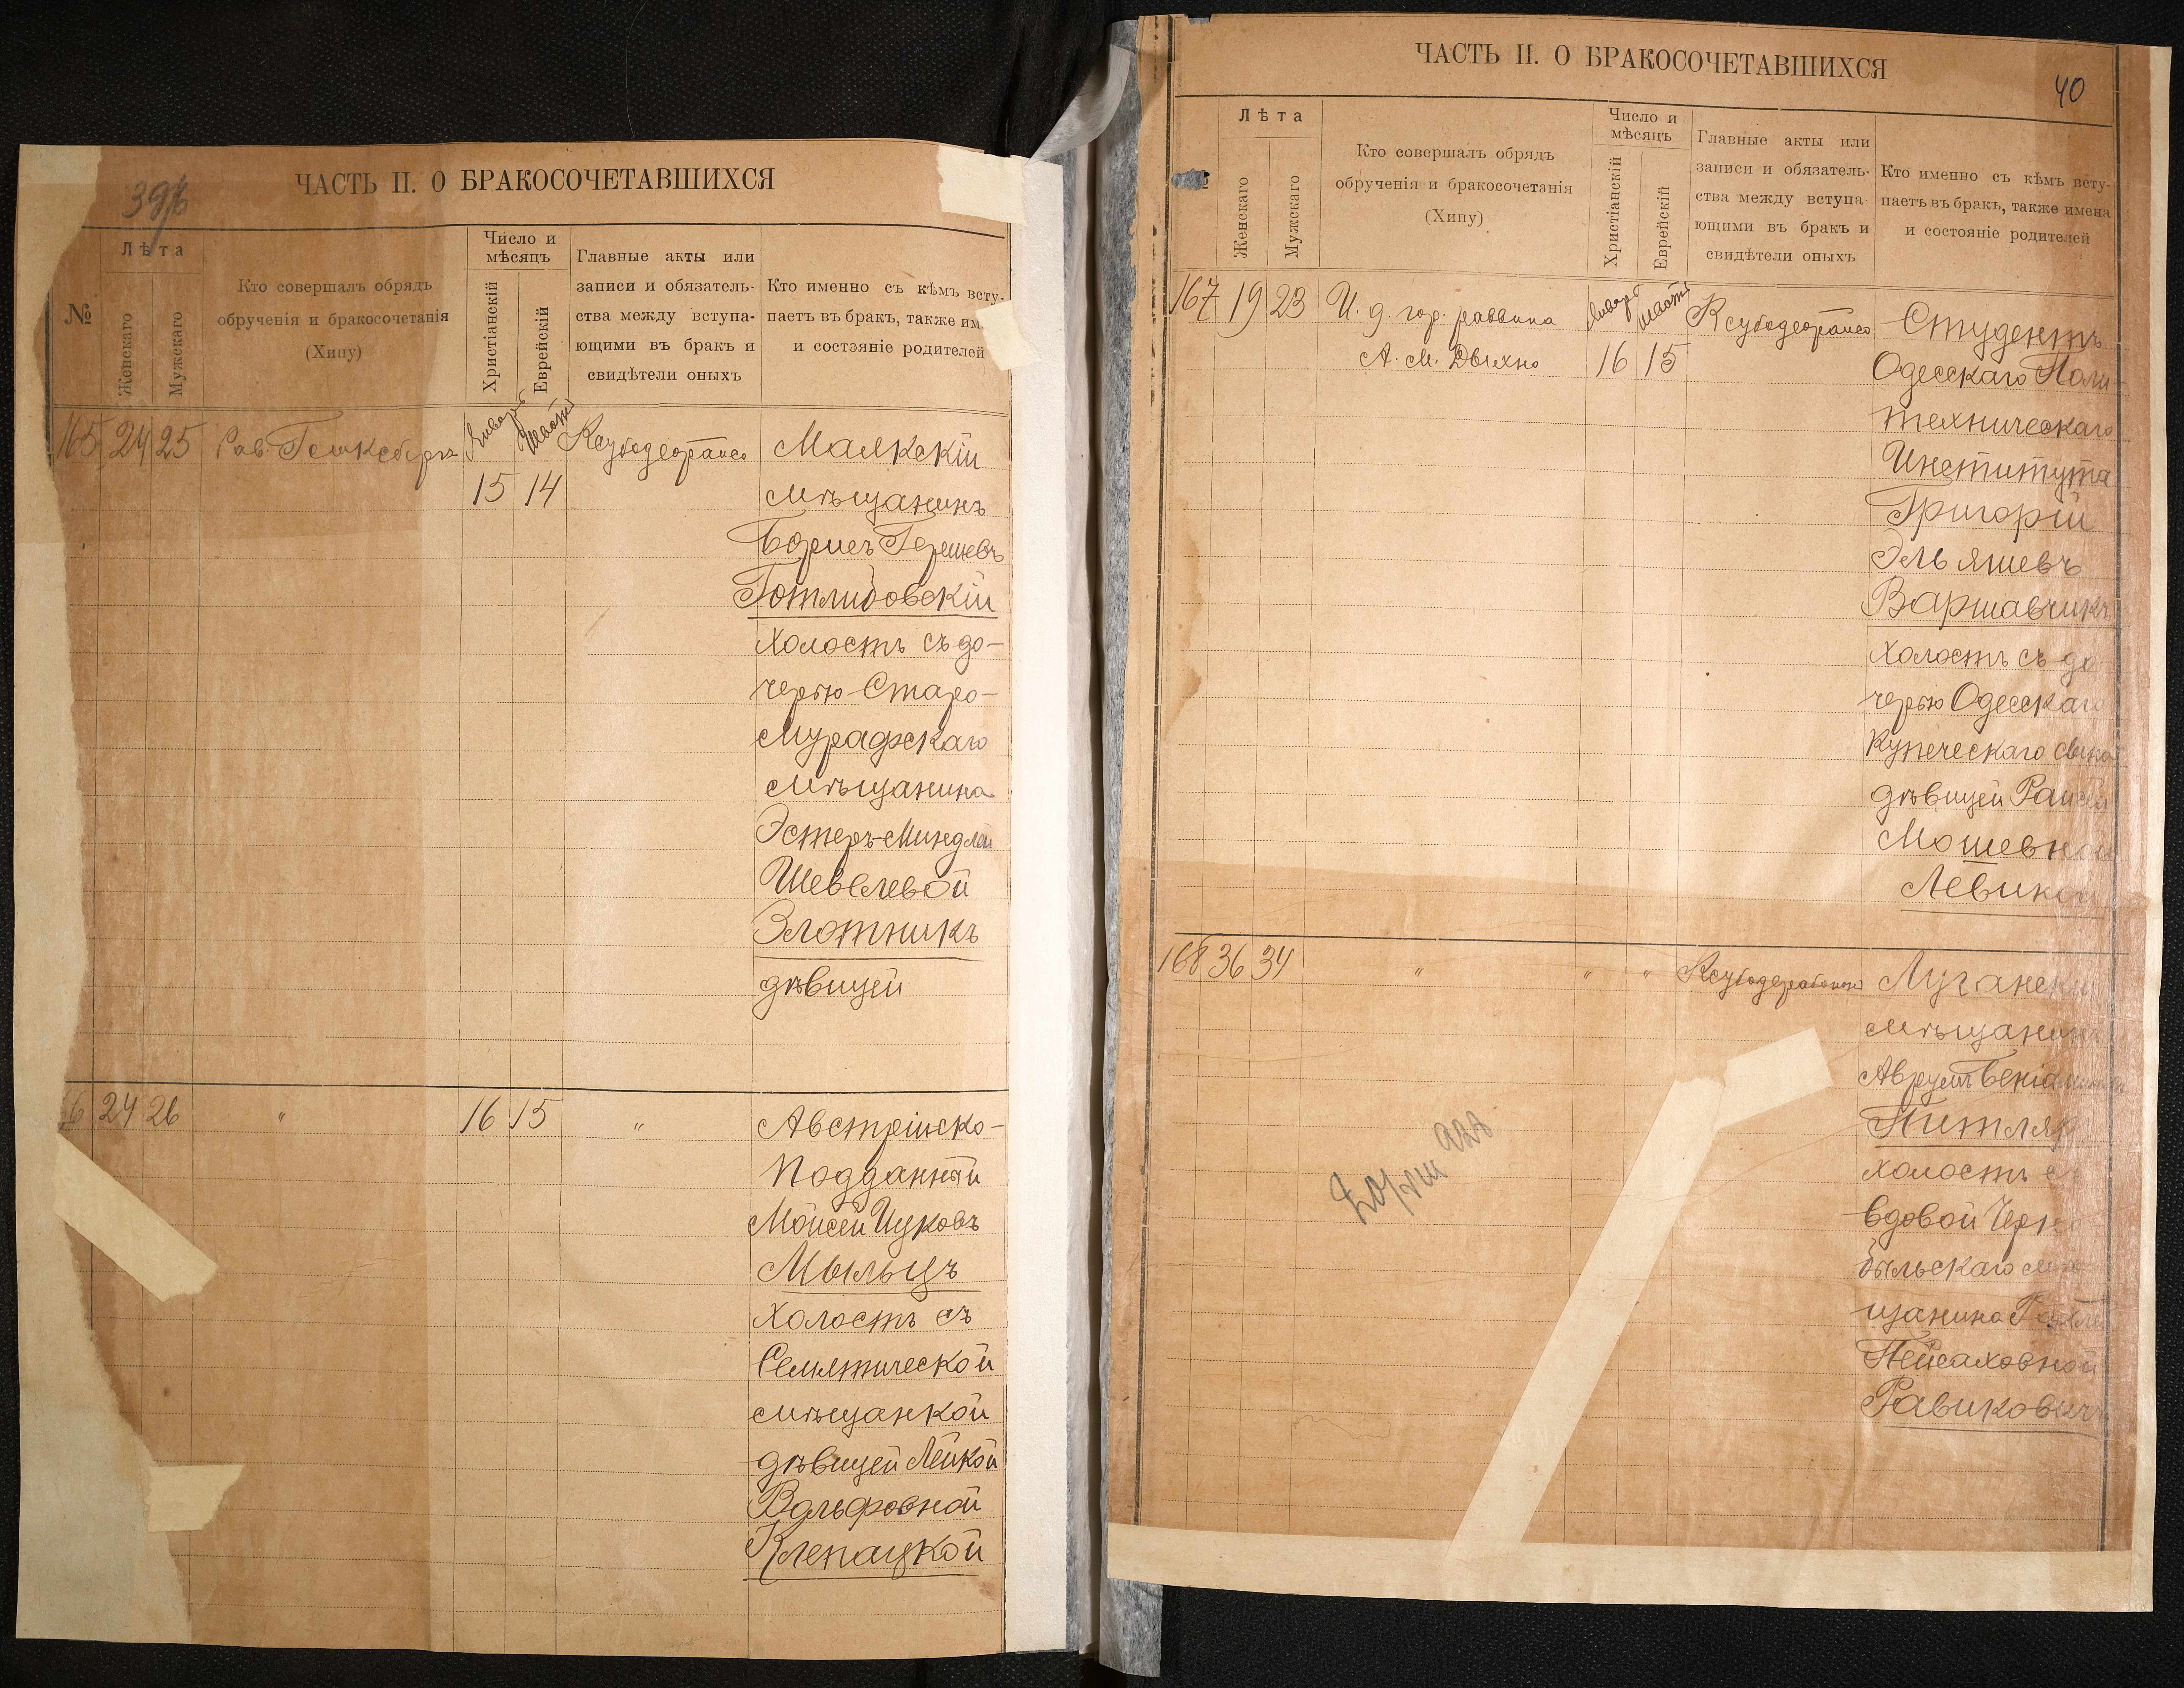 ЧАСТЬ II. О БРАКОСОЧЕТАВШИХСЯ
№
Лѣта
Женскаго
Мужскаго
Кто совершалъ обрядъ
обрученія и бракосочетанія
(Хипу)
Число и
мѣсяцъ
Христіанскій
Еврейскій
Главные акты или
записи и обязатель-
ства между вступа-
ющими въ бракъ и
свидѣтели оныхъ
Кто именно съ кѣмъ всту-
паетъ въ бракъ, также им
и состояніе родителей
165 24 25 Рав. Январь Шватъ
15 14
Маякскій
мѣщанинъ
Борисъ Гершевъ
Готлибовскій
холостъ съ до-
черью Старо-
Мурафскаго
мѣщанина
Эстеръ-Миндлей
Шевелевой
Злотникъ
дѣвицей
6 24 26 " 16 15 "
Австрійско-
Подданный
Моисей Ицковъ
Мыльцъ
холостъ съ
Семятической
мѣщанкой
дѣвицей Лейкой
Вольфовной
Клепацкой
ЧАСТЬ II. О БРАКОСОЧЕТАВШИХСЯ
40
Лѣта
Женскаго
Мужскаго
Кто совершалъ обрядъ
обрученія и бракосочетанія
(Хипу)
Число и
мѣсяцъ
Христіанскій
Еврейскій
Главные акты или
записи и обязатель-
ства между вступа-
ющими въ бракъ и
свидѣтели оныхъ
Кто именно съ кѣмъ всту-
паетъ въ бракъ, также имена
и состояніе родителей
167 19 23 И. д. гор. раввина Январь Шватъ
А. М. Дыхно 16 15
Студентъ
Одесскаго Поли-
техническаго
Института
Григорій
Эльяшевъ
Варшавчикъ
холостъ съ до
черью Одесскаго
Купеческаго сына
дѣвицей Раисей
Мошевной
Левиной
168 36 34 " " "
Луганскій
мѣщанинъ
Аврумъ
Питляр
холостъ с
вдовой Черно
быльскаго мѣ
щанина
Пейсаховной
Равиковичъ